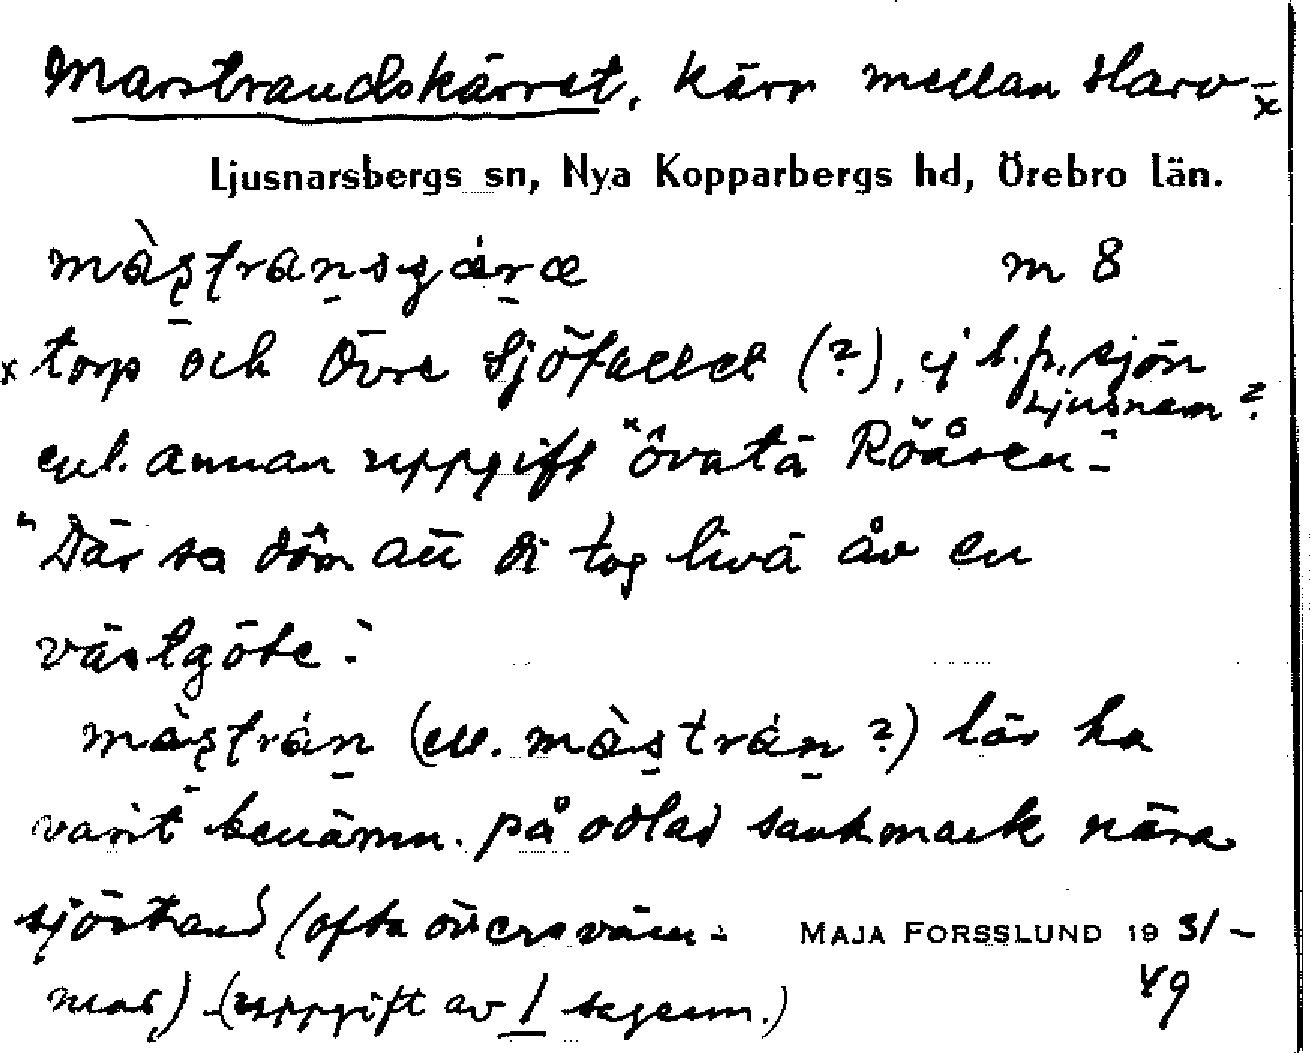 Marstrandskärret, kärr mellan Harv-
x
Ljusnarsbergs sn, Nya Kopparbergs hd, Örebro län.
m 8
x torp och Övre Sjöfallet (?), ej b.p. sjön
Ljusnaren ?
enl. annan uppgift "övatä Röåsen-
"Där sa döm att di tog livä åv en
västgöte."
(ell. ?) lär ha
varit benämn. på odlad sankmark nära
sjöstrand (ofta översväm-
MAJA FORSSLUND 1931-
49
mad) (uppgift av 1 sagesm.)